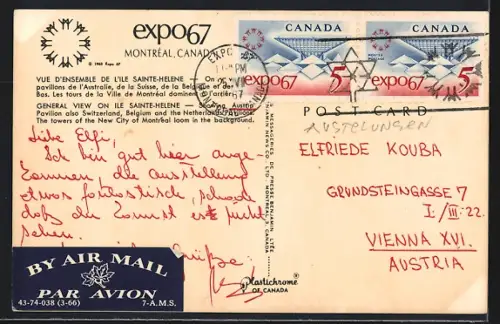 expo67
MONTRÉAL, CANADA
© 1963 Expo 67
VUE D'ENSEMBLE DE L'ILE SAINTE-HELENE — On
pavillons de l'Australie, de la Suisse, de la Belgique et des
Bas. Les tours de la Ville de Montréal dominent l'arrière
GENERAL VIEW ON ILE SAINTE-HELENE — Showing Austria
Pavilion also Switzerland, Belgium and the Netherlands
The towers of the New City of Montréal loom in the background.
CANADA
expo67
5
CANADA
expo67
5
EXPO
PM
67
MONTREAL
POST CARD
AUSTELUNGEN
Liebe Elfi,
Ich bin gut hier ange-
kommen, die Ausstellung
etwas fantastisch, schade
daß du Sonst es nicht
sehen.
Grüße
MESSAGERIES DE PRESSE BENJAMIN LTÉE
BENJAMIN NEWS CO. LTD. MONTREAL, P. CANADA
Plastichrome®
OF CANADA
ELFRIEDE KOUBA
GRUNDSTEINGASSE 7
I./III. 22.
VIENNA XVI.
AUSTRIA
BY AIR MAIL
PAR AVION
43-74-038 (3-66) 7-A.M.S.